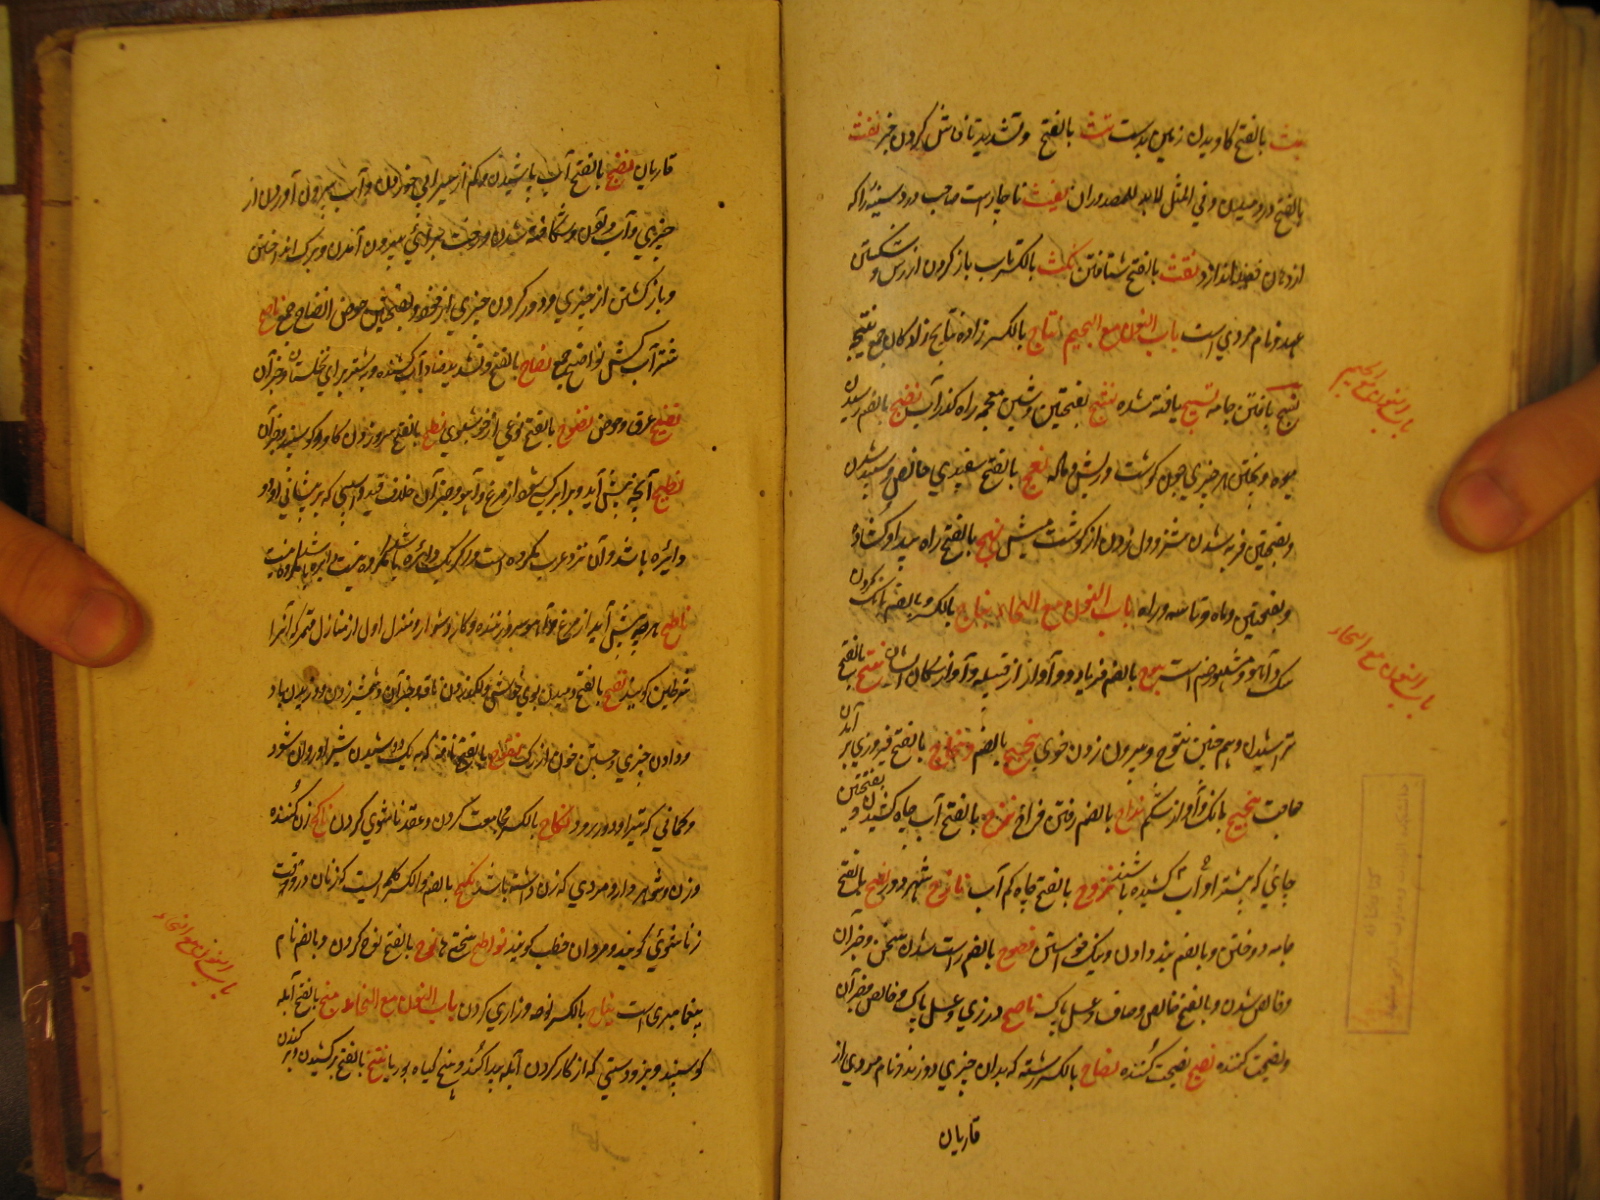 بالفتح کاویدن زمین بدست نث بالفتح و تشدید ثا فاش کردن خبر نفث
بالفتح در دمیدن و فی المثل لابد للمصدور ان ینفث ناچار است صاحب درد سینه را که
از دهان بیندازد نقث بالفتح شتافتن نکث بالکسر تاب باز کردن از رسن و شکستن
عهد و نام مردی است باب النون مع الجیم نتاج بالکسر زاده نتایج زادگان جمع نتیجه
نسج بافتن جامه نسیج بافته شده نشج بفتحتین و شین معجمه راه گذر آب نضج بالضم رسیدن
میوه و پختن هر چیزی چون گوشت و ریش و ماله نعج بالفتح سفیدی خالص و سپید شدن
و بفتحتین فربه شدن شتر و دل زدن از گوشت میش نهج بالفتح راه پیدا و گشاده
و بفتحتین دماه و تاسه و راه باب النون مع الحاء نباح بالکسر و بالضم بانک کردن
سک و آهو و مشهور ضم است نبوح بالضم فریاد و آواز از قبیله و آواز سکان ایشان نتح بالفتح
ترشیدن و هم چنین نتوح و بیرون زدن خوی نجح بالضم و نجاح بالفتح فیروزی بر آمدن
حاجت نحیح بانک و آواز شکم نزاح بالضم رفتن فراخ نزح بالفتح آب چاه کشیدن و بفتحتین
جائی که بیشتر او آب کشیده باشند نزوح بالفتح چاه کم آب نازح شهر دور نصح بالفتح
جامه دوختن و بالضم پند دادن و نیک خواستن نصوح بالضم راست شدن سخن و جز آن
و خالص شدن و بالفتح خالص و صاف و عسل پاک ناصح درزی و عسل پاک و خالص و جز آن
و نصیحت کننده نصیح نصیحت کننده نصاح بالکسر رشته که بدان چیزی دوزند و نام مردی از
قاریان
باب النون مع الجیم
باب النون مع الحاء
قاریان نضح بالفتح آب پاشیدن و کم از سیرابی خوردن و آب بیرون آوردن از
چیزی و آب و شکافته شدن درخت بیرون آمدن و برک انداختن
و باز گشتن از چیزی و دور کردن چیزی از خود و بفتحتین حوض انضاح جمع ناضح
شتر آب کش نواضح جمع نضاح بالفتح و تشدید ضاد آب کشنده و شتر برای نخلستان و جز آن
نضیح عرق و حوض نضوح بالفتح نوعی از خوشبوی نطح بالفتح سرو زدن کاو و کوسپند و جز آن
نطیح آنچه پیش آید و برابر کسی شود از مرغ و آهو و جز آن خلاف قعید و اسپی که بر پیشانی او دو
دایره باشد و آن نزد عرب مکروه است و اگر یک دایره باشد مکروه نیست
ناطح هر چه پیش آید از مرغ و آهو و سرو زننده و کار دشوار و منزل اول از منازل قمر که آنرا
شرطین کویند نفح بالفتح دمیدن بوی خوش و لکد زدن ناقه و جز آن و شمشیر زدن و وزیدن باد
و دادن چیزی و جستن خون از رک نفوح بالفتح ناقه که بی دوشیدن شیر او روان شود
و کمانی که تیر او دور رود نکاح بالکسر مجامعت کردن و عقد زناشوی کردن ناکح زن کننده
و زن شوهردار و مردی که زن داشته باشد نکح بالضم و الکسر کلمه ایست که زنان در وقت
زناشوئی کویند و مردان خطب کویند نواطح سختی ها نوح بالفتح نوحه کردن و بالضم نام
پیغامبری است نیاح بالکسر نوحه و زاری کردن باب النون مع الخاء نبخ بالفتح آبله
کوسپند و بز و دستی که از کار کردن آبله پیدا کند و بیخ کیاه بوریا نتخ بالفتح بر کشیدن و بر کندن
باب النون مع الخاء